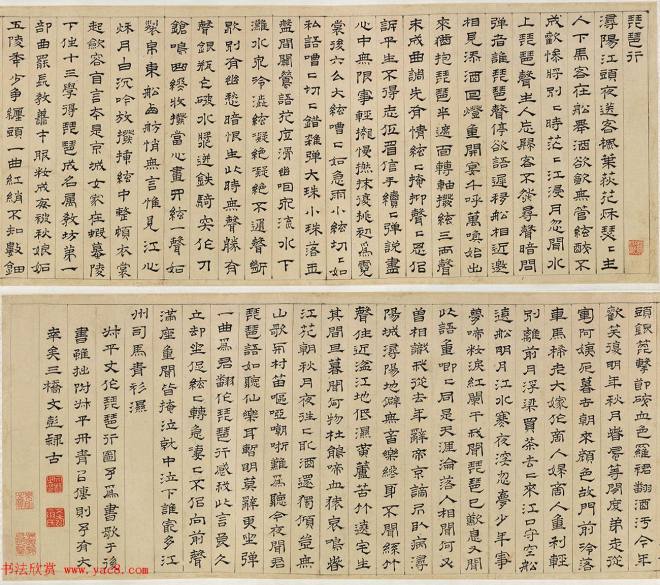 琵琶行
潯陽江頭夜送客楓葉荻花秋瑟〻主
人下馬客在船舉酒欲飲無管絃醉不
成歡慘將別〻時茫〻江浸月忽聞水
上琵琶聲主人忘歸客不發尋聲暗問
彈者誰琵琶聲停欲語遲移船相近邀
相見添酒回燈重開宴千呼萬喚始出
來猶抱琵琶半遮面轉軸撥絃三兩聲
未成曲調先有情絃〻掩抑聲〻思似
訴平生不得志低眉信手續〻彈說盡
心中無限事輕攏慢撚抹復挑初為霓
裳後六么大絃嘈〻如急雨小絃切〻如
私語嘈〻切〻錯雜彈大珠小珠落玉
盤間關鶯語花底滑幽咽泉流水下
灘水泉冷澀絃凝絕凝絕不通聲漸
歇別有幽愁暗恨生此時無聲勝有
聲銀瓶乍破水漿迸鐵騎突出刀
鎗鳴曲終收撥當心畫四絃一聲如
裂帛東船西舫悄無言惟見江心
秋月白沉吟放撥插絃中整頓衣裳
起斂容自言本是京城女家在蝦蟇陵
下住十三學得琵琶成名屬教坊第一
部曲罷長教善才服妝成每被秋娘妒
五陵年少爭纏頭一曲紅綃不知數鈿
頭銀篦擊節碎血色羅裙翻酒污今年
歡笑復明年秋月春風等閒度弟走從
軍阿姨死暮去朝來顏色故門前冷落
車馬稀老大嫁作商人婦商人重利輕
別離前月浮梁買茶去〻來江口守空船
遶船明月江水寒夜深忽夢少年事
夢啼妝淚紅闌干我聞琵琶已歎息又聞
此語重唧〻同是天涯淪落人相
曾相識我從去年辭帝京謫居臥病潯
陽城潯陽地僻無音樂終歲不聞絲竹
聲住近湓江地低濕黃蘆苦竹遶宅生
其間旦暮聞何物杜鵑啼血猿哀鳴春
江花朝秋月夜往〻取酒還獨傾豈無
山歌與村笛嘔啞嘲哳難為聽今夜聞君
琵琶語如聽仙樂耳暫明莫辭更坐彈
一曲為君翻作琵琶行感我此言良久
立却坐促絃〻轉急淒〻不似向前聲
滿座重聞皆掩泣就中泣下誰最多江
州司馬青衫濕
升平丈作琵琶行圖予為書歌于後
書雖拙附升平丹青以傳則予有大
幸矣三橋文彭隸古
书法欣赏 www.yac8.com